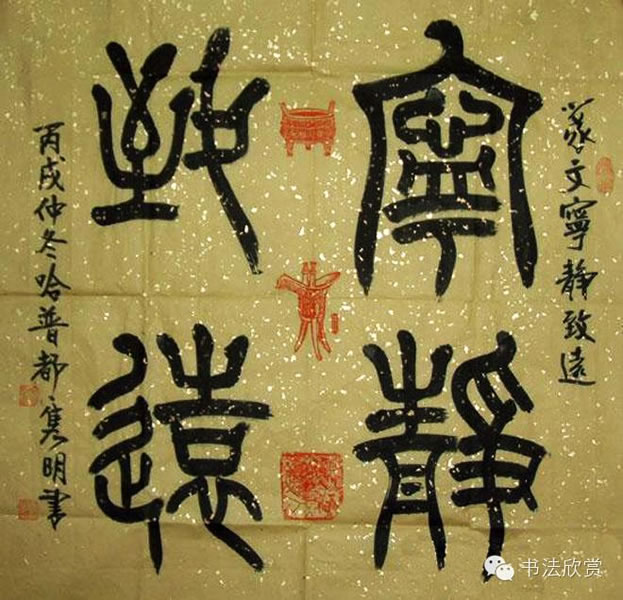 篆文寧靜致遠
寧靜
致遠
丙戌仲冬哈普都·隽明書
书法欣赏